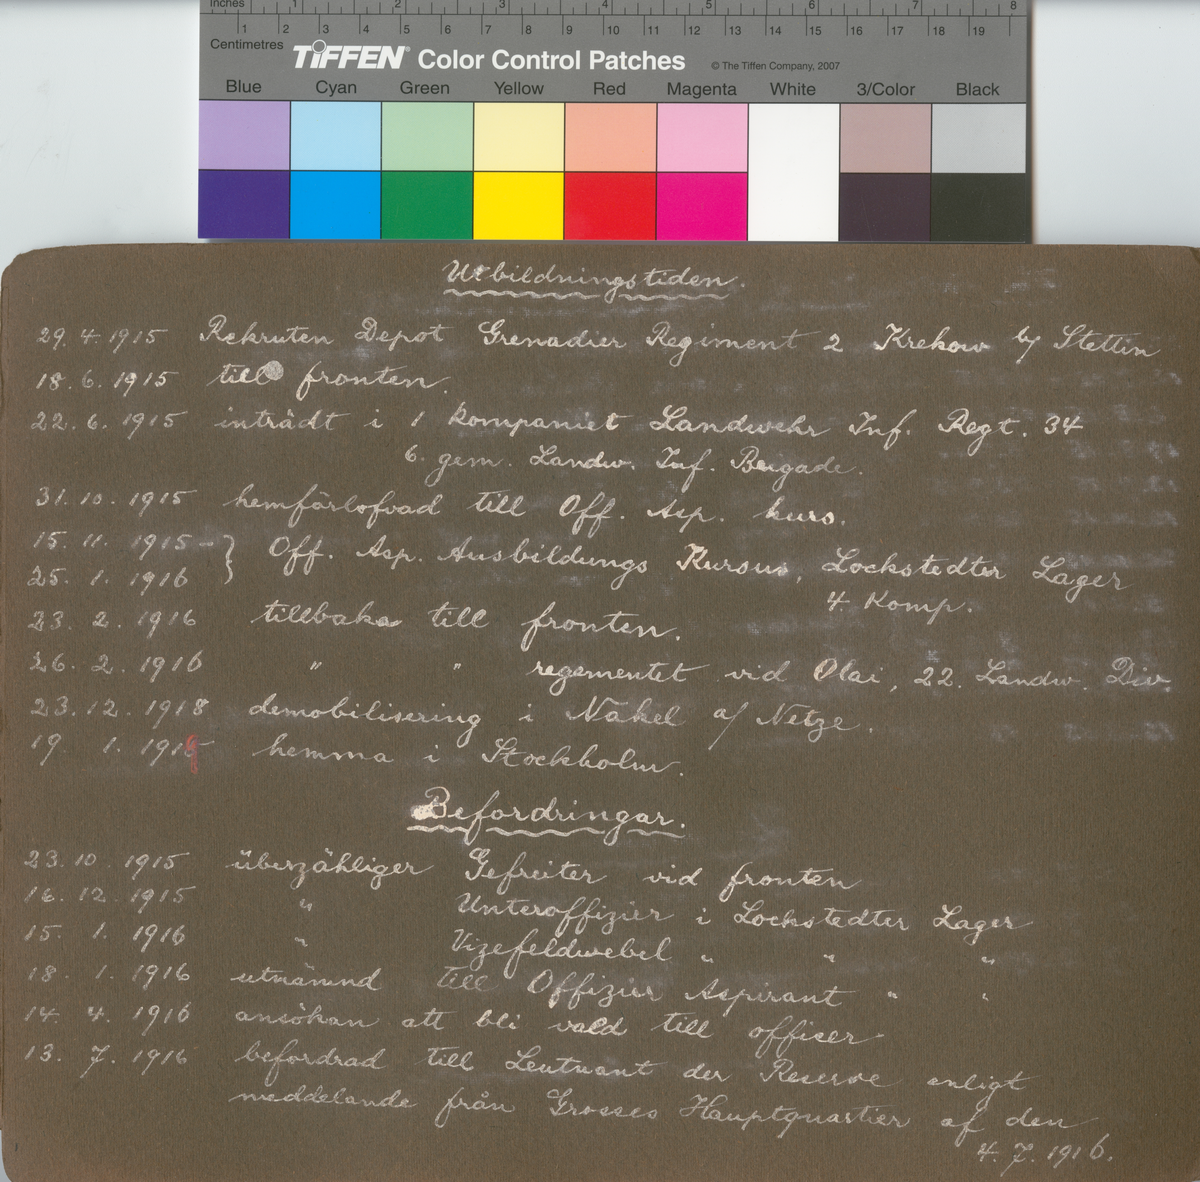 Inches 1 2 3 4 5 6 7 8
1 2 3 4 5 6 7 8 9 10 11 12 13 14 15 16 17 18 19
Centimetres
TIFFEN® Color Control Patches © The Tiffen Company, 2007
Blue Cyan Green Yellow Red Magenta White 3/Color Black
Utbildningstiden.
29. 4. 1915 Rekruten Depot Grenadier Regiment 2 Krekow b/ Stettin
18. 6. 1915 till fronten.
22. 6. 1915 inträdt i 1 kompaniet Landwehr Inf. Regt. 34
6. gem. Landw. Inf. Brigade.
31. 10. 1915 hemförlofvad till Off. Asp. kurs.
15. 11. 1915 - } Off. Asp. Ausbildungs Kursus, Lockstedter Lager
25. 1. 1916 4. Komp.
23. 2. 1916 tillbaka till fronten.
26. 2. 1916 " " regementet vid Olai, 22. Landw. Div.
23. 12. 1918 demobilisering i Nakel a/ Netze.
19 1. 1919 hemma i Stockholm.
Befordringar.
23. 10. 1915 überzähliger Gefreiter vid fronten
16. 12. 1915 " Unteroffizier i Lockstedter Lager
15. 1. 1916 " Vizefeldwebel " " "
18. 1. 1916 utnämnd till Offizier Aspirant " "
14. 4. 1916 ansökan att bli vald till officer
13. 7. 1916 befordrad till Leutnant der Reserve enligt
meddelande från Grosses Hauptquartier af den
4. 7. 1916.